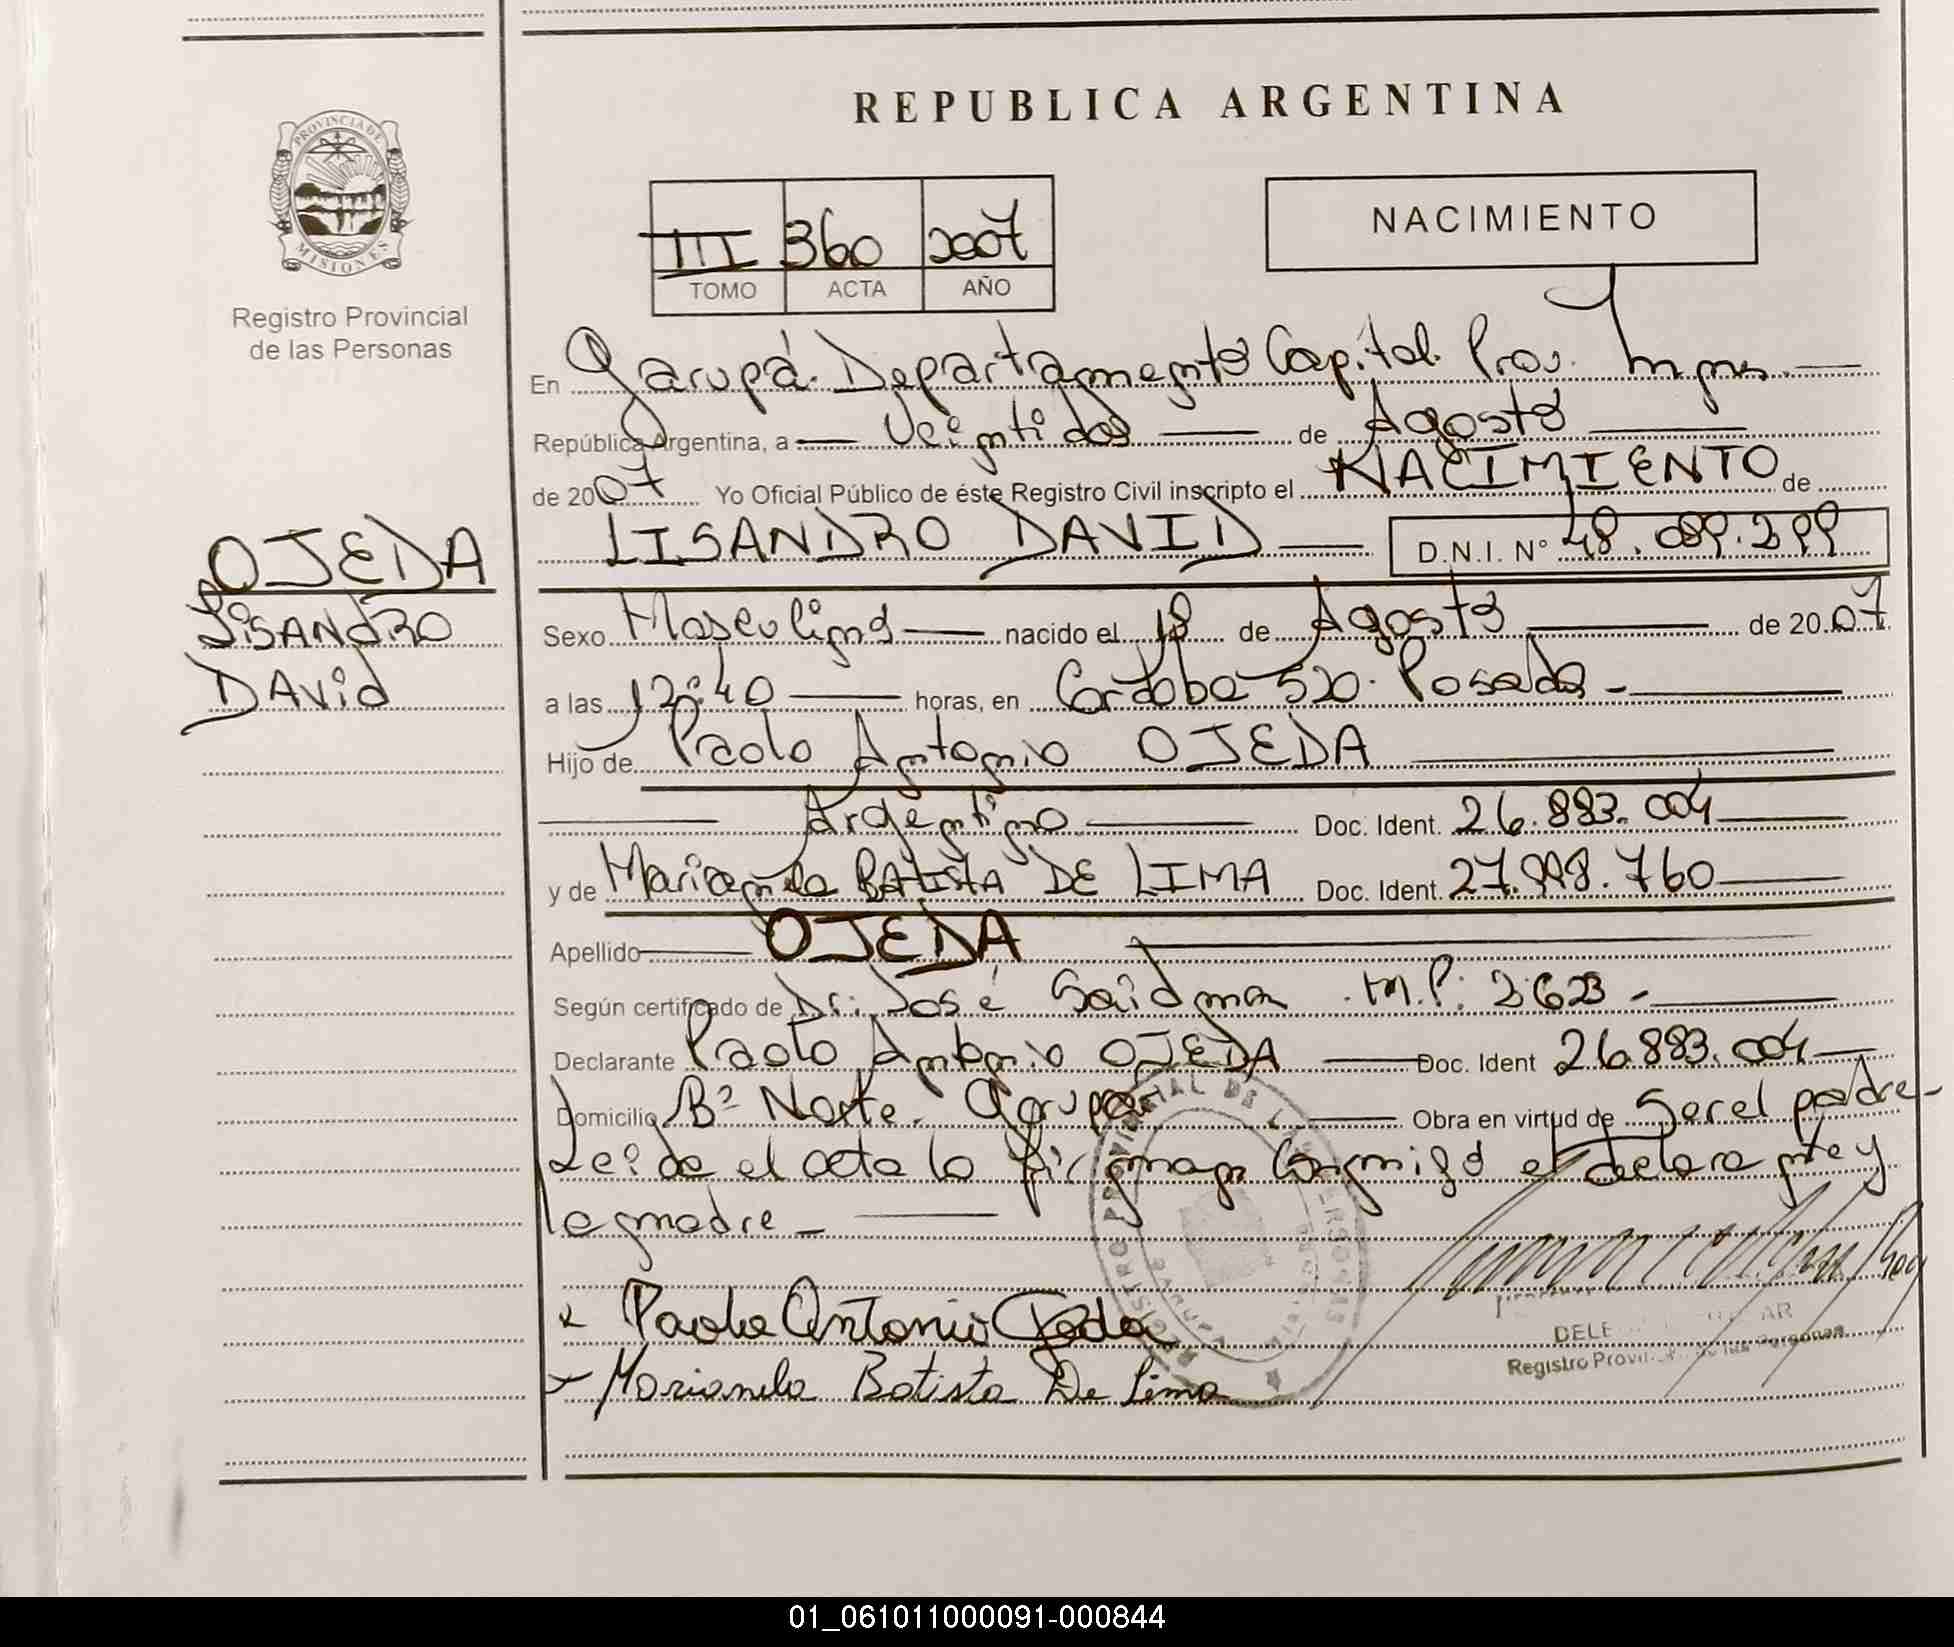 REPUBLICA ARGENTINA
PROVINCIA DE
MISIONES
Registro Provincial
de las Personas
NACIMIENTO
III 360 2007
TOMO ACTA AÑO
En Garupá. Departamento Capital Prov. Mnes.
República Argentina, a Veintidos de Agosto
de 2007 Yo Oficial Público de éste Registro Civil inscripto el NACIMIENTO de
LISANDRO DAVID D.N.I. Nº 48.089.299
OJEDA
LiSANdRO
DAVid
Sexo Masculino nacido el 18 de Agosto de 2007
a las 12:40 horas, en Cordoba 520. Posadas -
Hijo de Paolo Antonio OJEDA
Argentino Doc. Ident. 26.883.004
y de Marianela BATISTA DE LIMA Doc. Ident. 27.998.760
Apellido OJEDA
Según certificado de Dr. José Saidman M.P: 2623 -
Declarante Paolo Antonio OJEDA Doc. Ident 26.883.004
Domicilio Bº Norte. Garupá Obra en virtud de Ser el padre -
Leida el acta la firman Conmigo el declarante y
la madre -
x Paolo Antonio Ojeda
x Marianela Batista De Lima
REGISTRO PROVINCIAL DE LAS PERSONAS
Registro Provin
01_061011000091-000844